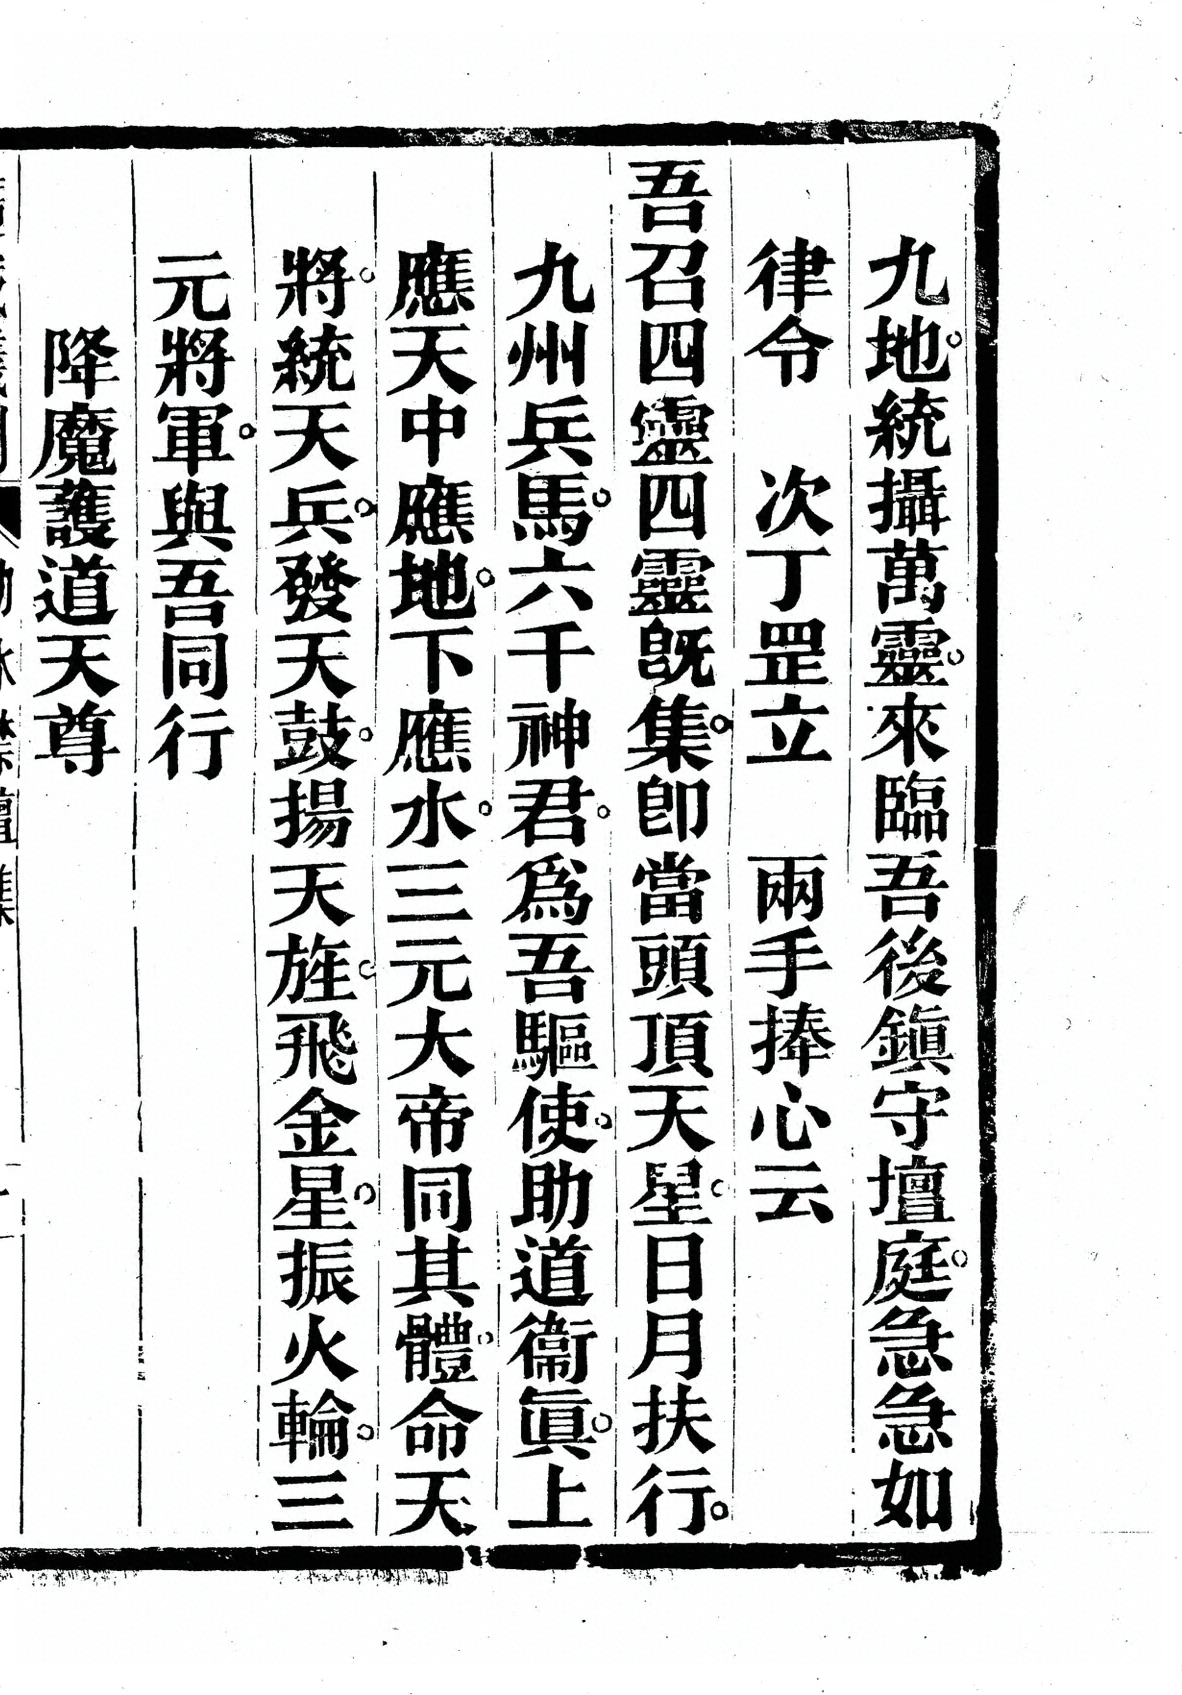 九地。統攝萬靈。來臨吾後鎮守壇庭。急急如
律令　次丁罡立　兩手捧心云
吾召四靈四靈旣集。卽當頭頂天星。日月扶行。
九州兵馬。六千神君。爲吾驅使。助道衞眞。上
應天中應地。下應水。三元大帝同其體。命天
將。統天兵。發天鼓。揚天旌。飛金星。振火輪。三
元將軍。與吾同行
降魔護道天尊